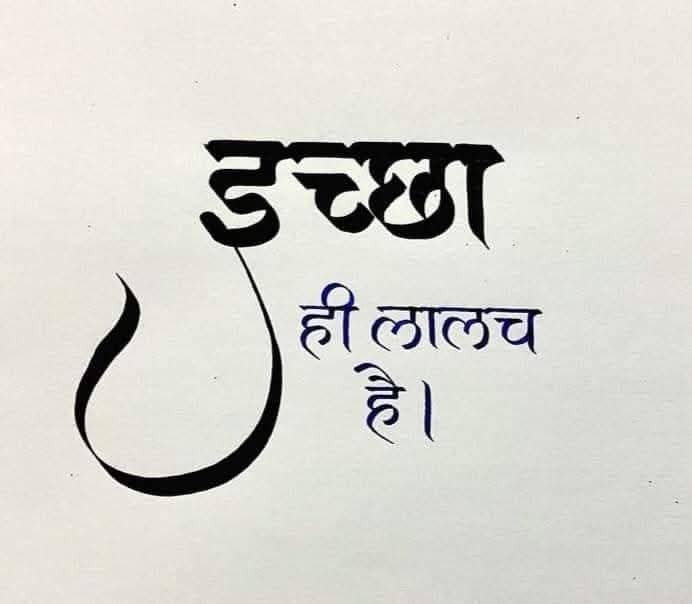 इच्छा
ही लालच
है।